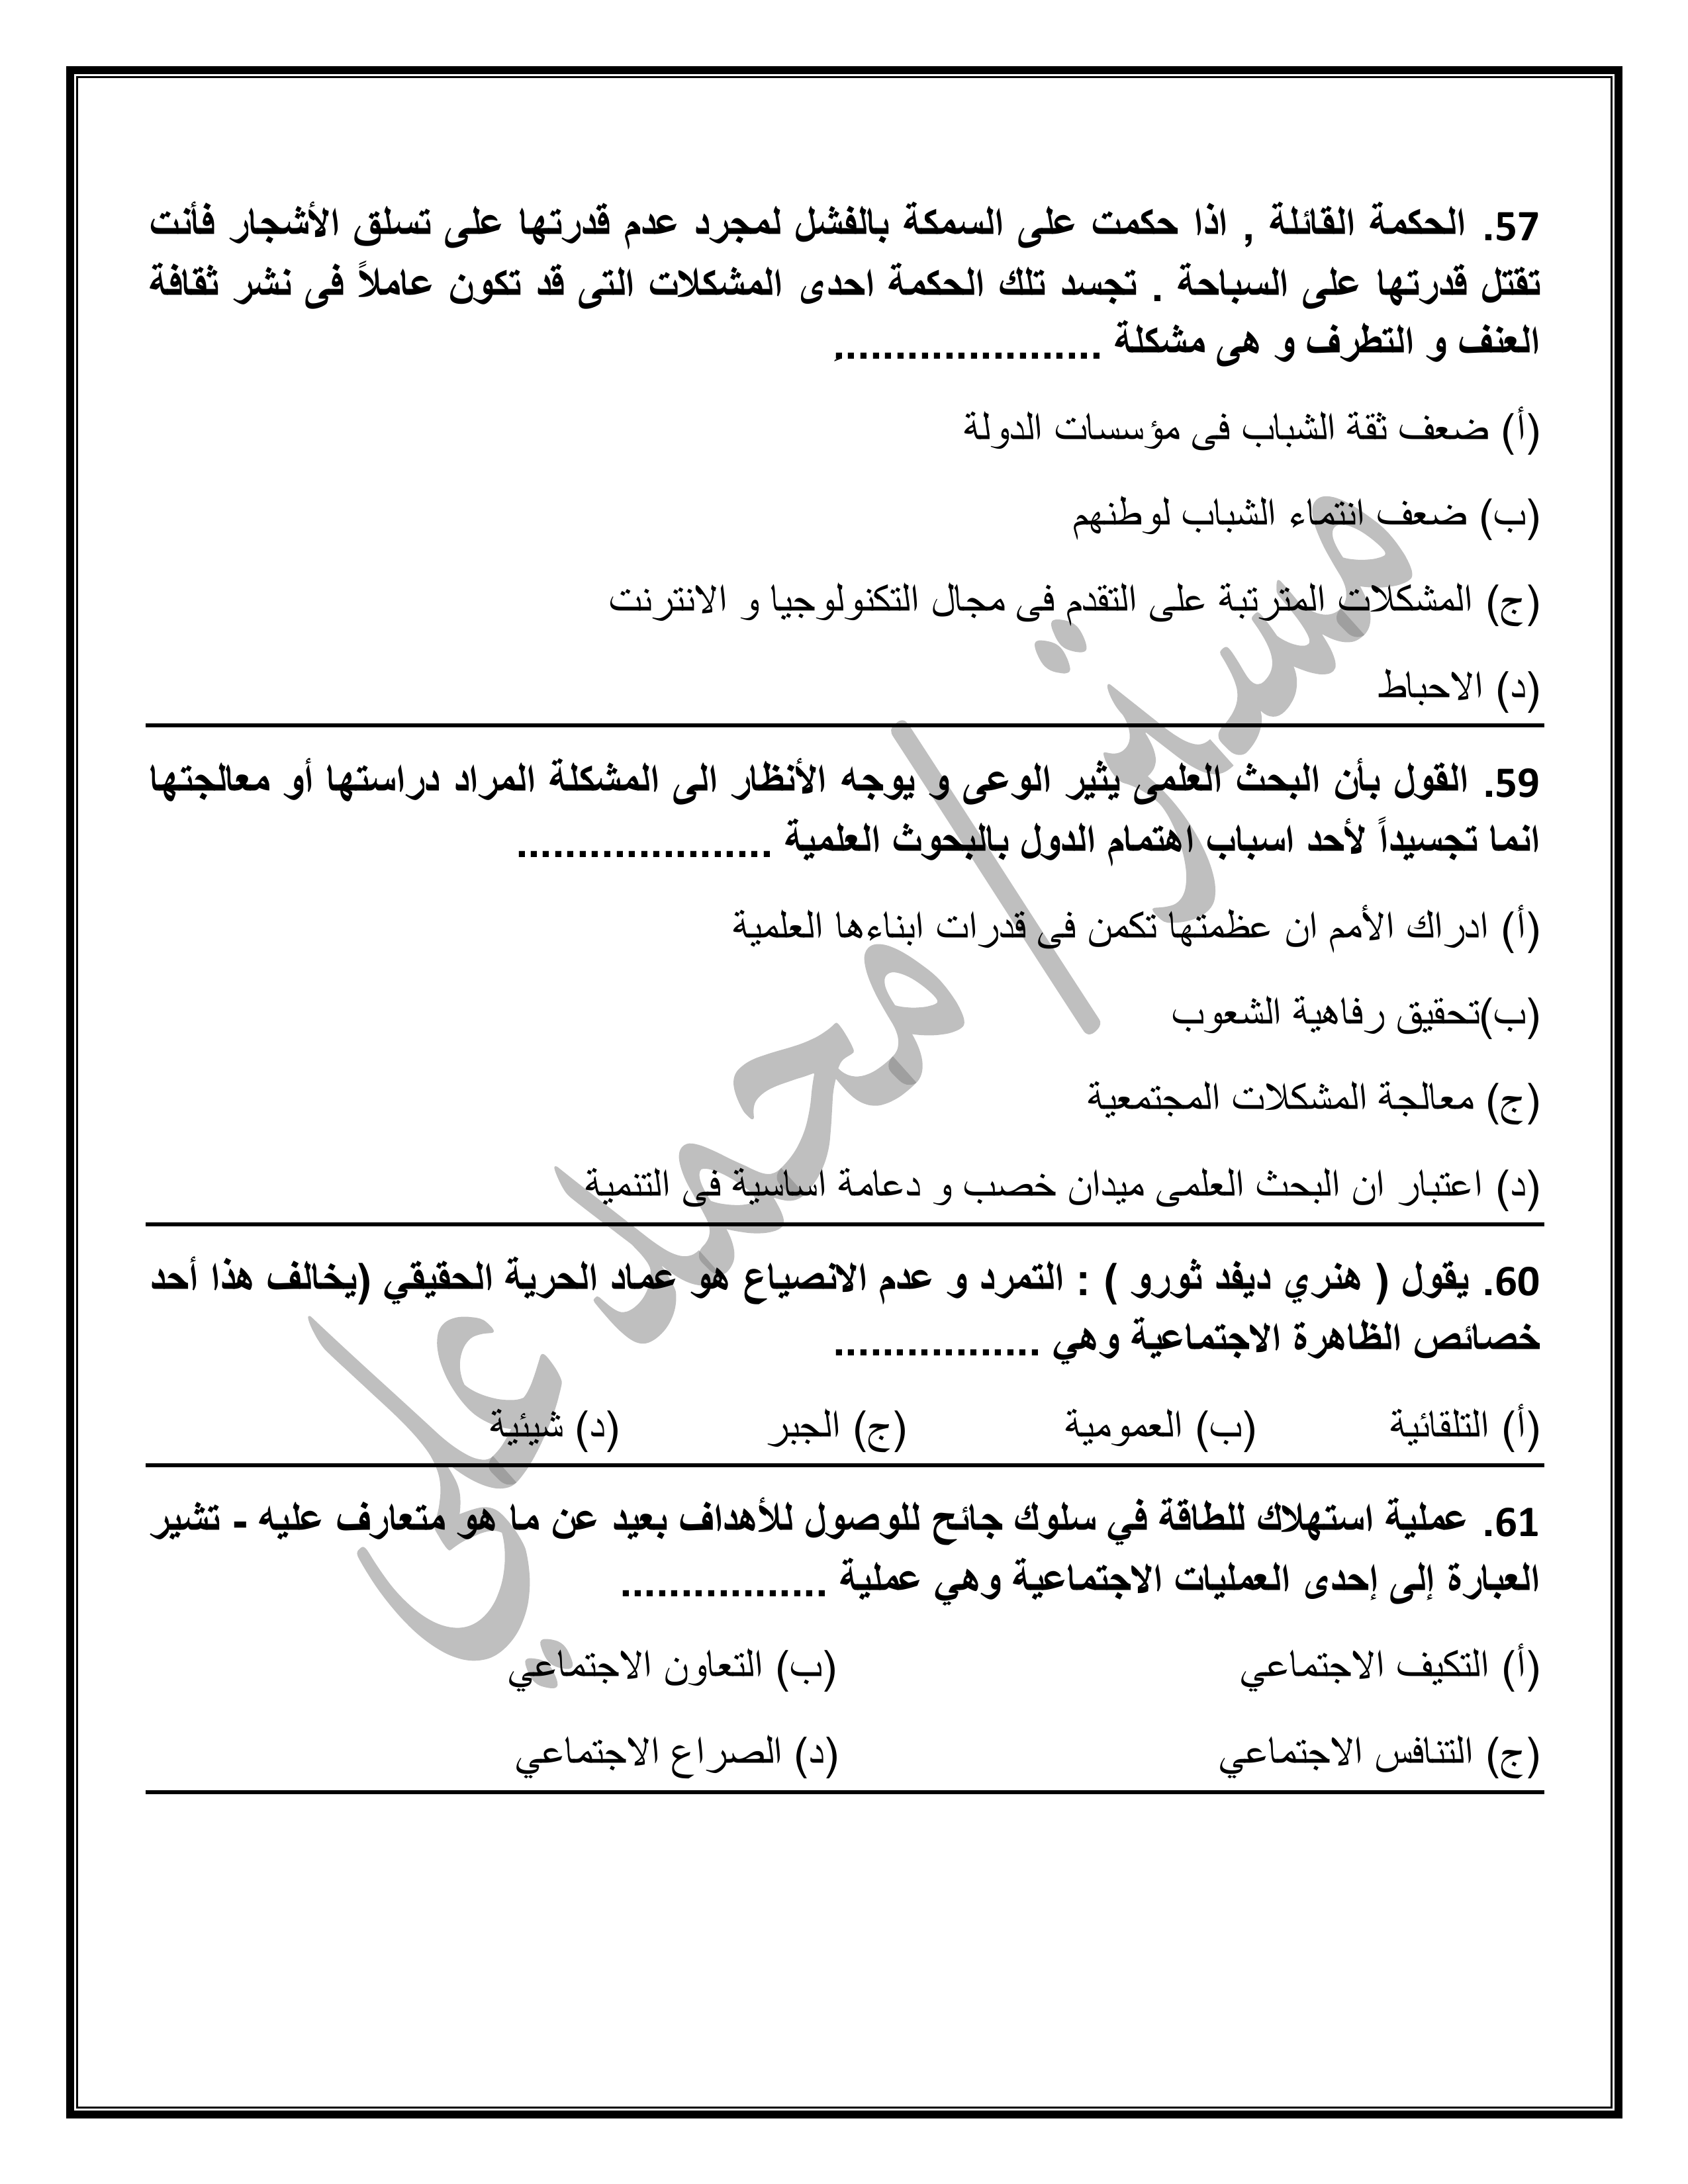 57. الحكمة القائلة , اذا حكمت على السمكة بالفشل لمجرد عدم قدرتها على تسلق الأشجار فأنت
تقتل قدرتها على السباحة . تجسد تلك الحكمة احدى المشكلات التى قد تكون عاملاً فى نشر ثقافة
العنف و التطرف و هى مشكلة ......................
(أ) ضعف ثقة الشباب فى مؤسسات الدولة
(ب) ضعف انتماء الشباب لوطنهم
(ج) المشكلات المترتبة على التقدم فى مجال التكنولوجيا و الانترنت
(د) الاحباط
59. القول بأن البحث العلمى يثير الوعى و يوجه الأنظار الى المشكلة المراد دراستها أو معالجتها
انما تجسيداً لأحد اسباب اهتمام الدول بالبحوث العلمية .....................
(أ) ادراك الأمم ان عظمتها تكمن فى قدرات ابناءها العلمية
(ب)تحقيق رفاهية الشعوب
(ج) معالجة المشكلات المجتمعية
(د) اعتبار ان البحث العلمى ميدان خصب و دعامة اساسية فى التنمية
60. يقول ( هنري ديفد ثورو ) : التمرد و عدم الانصياع هو عماد الحرية الحقيقي (يخالف هذا أحد
خصائص الظاهرة الاجتماعية وهي .................
(أ) التلقائية (ب) العمومية (ج) الجبر (د) شيئية
61. عملية استهلاك للطاقة في سلوك جائح للوصول للأهداف بعيد عن ما هو متعارف عليه - تشير
العبارة إلى إحدى العمليات الاجتماعية وهي عملية .................
(أ) التكيف الاجتماعي (ب) التعاون الاجتماعي
(ج) التنافس الاجتماعي (د) الصراع الاجتماعي
مستر/ محمد علي